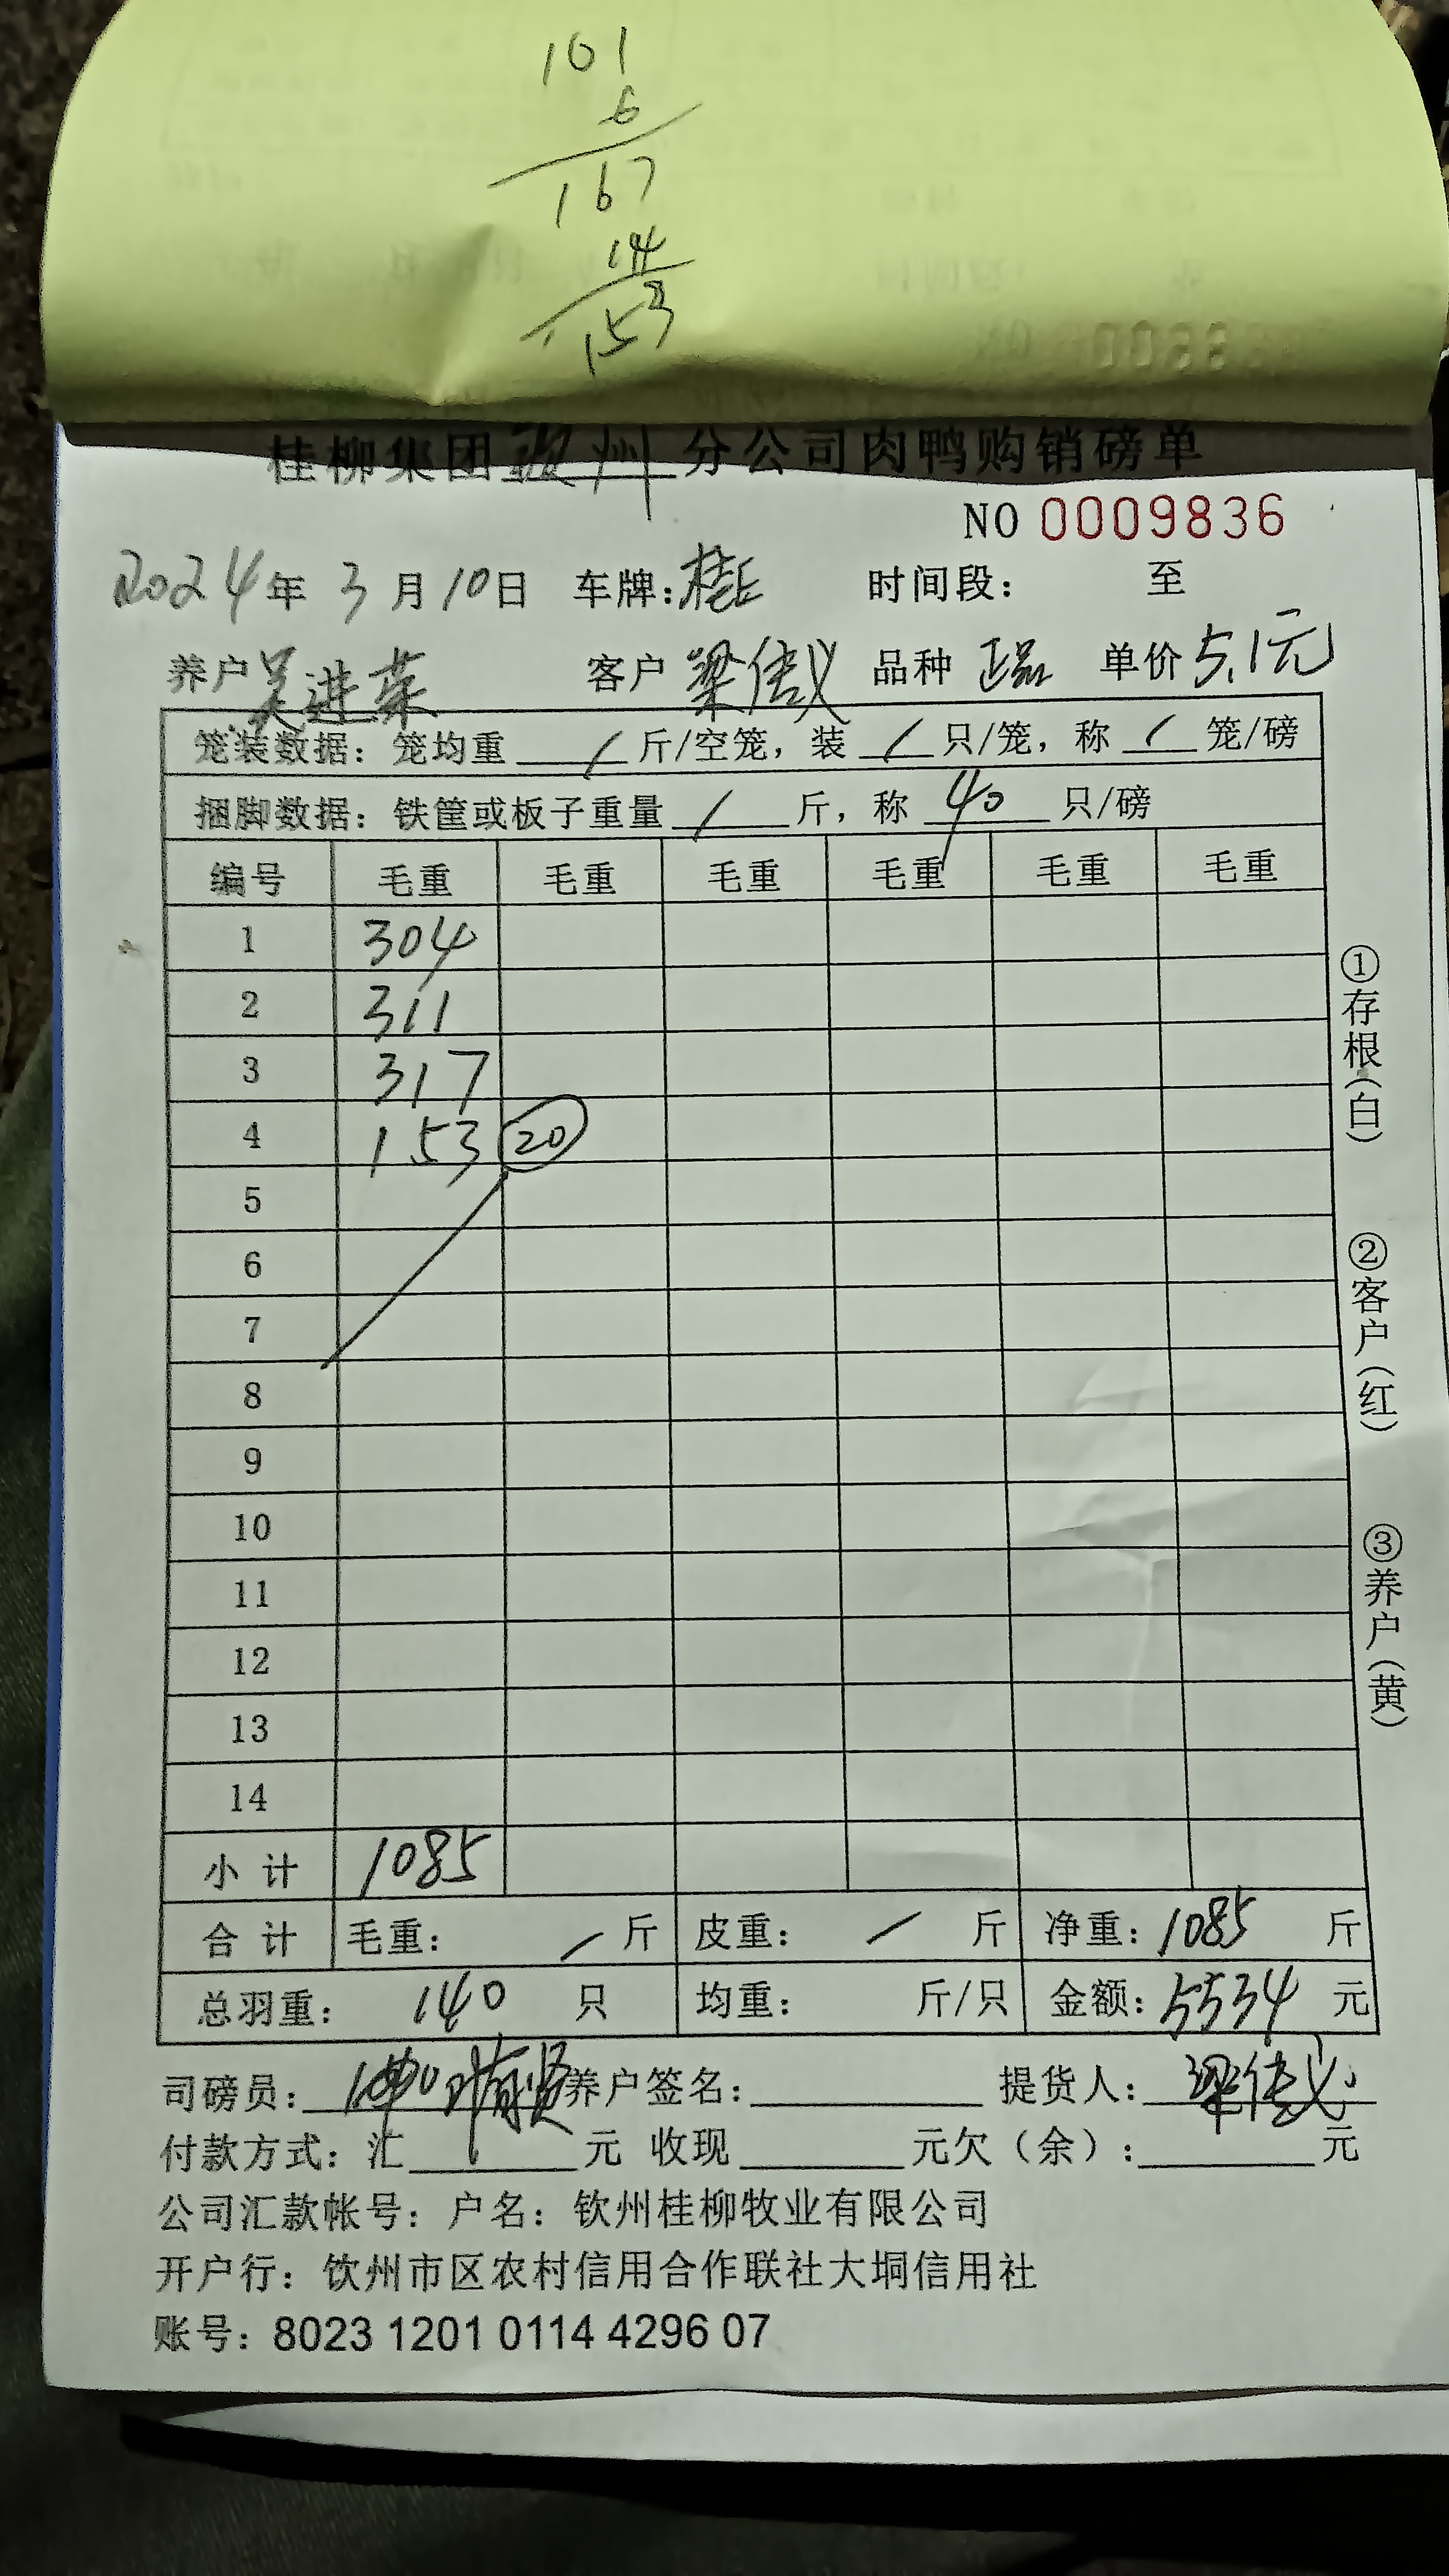 101
6
167
14
153
桂柳集团钦州分公司肉鸭购销磅单
NO 0009836
2024年3月10日 车牌:桂E 时间段: 至
养户 吴进荣 客户 梁传义 品种 正品 单价 5.1元
笼装数据: 笼均重 / 斤/空笼, 装 / 只/笼, 称 / 笼/磅
捆脚数据: 铁筐或板子重量 / 斤, 称 40 只/磅
编号 毛重 毛重 毛重 毛重 毛重 毛重
1 304
2 311
3 317
4 153 20
5
6
7
8
9
10
11
12
13
14
小计 1085
合计 毛重: / 斤 皮重: / 斤 净重: 1085 斤
总羽重: 140 只 均重: 斤/只 金额: 5534 元
司磅员: 养户签名: 提货人: 梁传义
付款方式: 汇 元 收现 元欠(余): 元
公司汇款帐号: 户名: 钦州桂柳牧业有限公司
开户行: 饮州市区农村信用合作联社大垌信用社
账号: 8023 1201 0114 4296 07
①存根(白)
②客户(红)
③养户(黄)